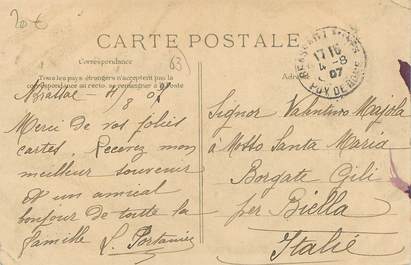 20 €
CARTE POSTALE
63
Correspondance
Tous les pays étrangers n'acceptent pas la
correspondance au recto, se renseigner à la Poste
17 15
4 - 8
07
PUY DE DOME
4/8 07
Merci de vos jolies
cartes. Recevez mon
meilleur souvenir
et un amical
bonjour de toute la
famille
Signor Valentino Majola
à Motto Santa Maria
Borgate Gili
per Biella
Italie